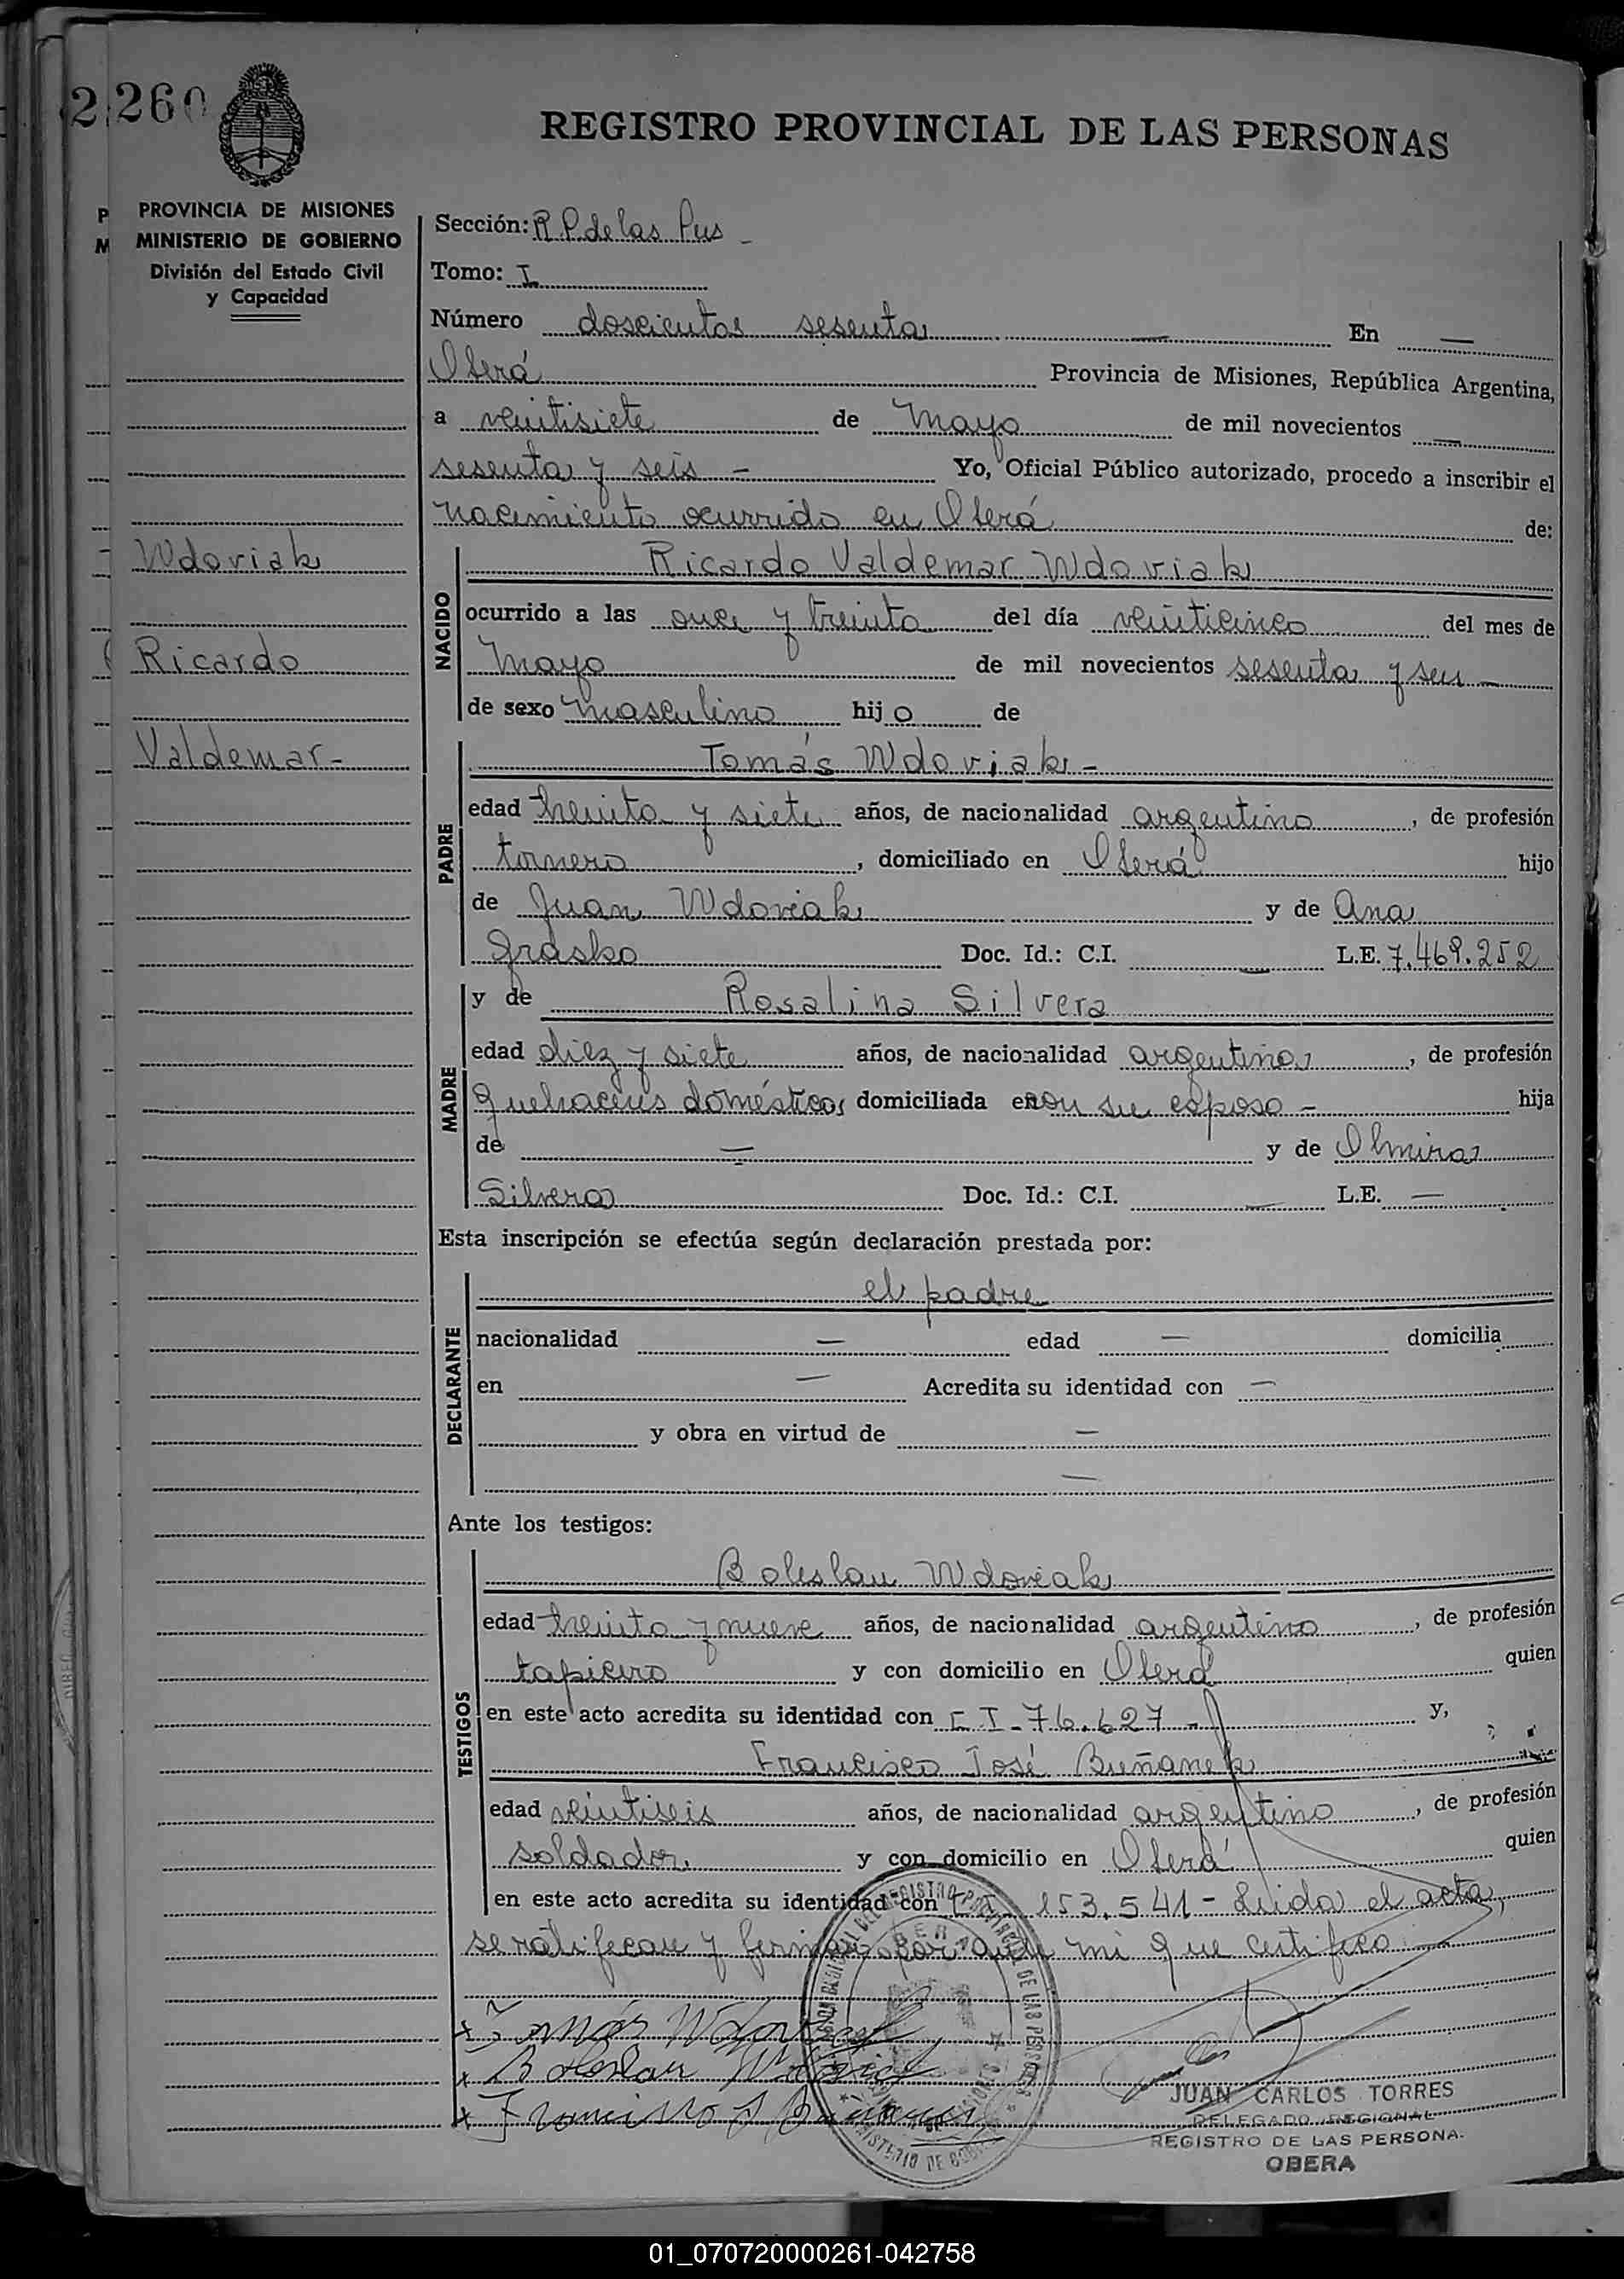 260
REGISTRO PROVINCIAL DE LAS PERSONAS
PROVINCIA DE MISIONES
MINISTERIO DE GOBIERNO
División del Estado Civil
y Capacidad
Sección: R.P. de las Pers -
Tomo: I
Número doscientos sesenta — En —
Oberá Provincia de Misiones, República Argentina,
a veintisiete de Mayo de mil novecientos —
sesenta y seis - Yo, Oficial Público autorizado, procedo a inscribir el
nacimiento ocurrido en Oberá de:
Wdoviak
Ricardo
Valdemar -
NACIDO
Ricardo Valdemar Wdoviak
ocurrido a las once y treinta del día veinticinco del mes de
Mayo de mil novecientos sesenta y seis -
de sexo masculino hijo de
PADRE
Tomás Wdoviak -
edad treinta y siete años, de nacionalidad argentino, de profesión
tornero, domiciliado en Oberá hijo
de Juan Wdoviak y de Ana
Grasko Doc. Id.: C.I. — L.E. 7.469.252
MADRE
y de Rosalina Silvera
edad diez y siete años, de nacionalidad argentina, de profesión
quehaceres domésticos domiciliada en con su esposo - hija
de — y de Olmira
Silvera Doc. Id.: C.I. — L.E. —
Esta inscripción se efectúa según declaración prestada por:
DECLARANTE
el padre
nacionalidad — edad — domicilia
en — Acredita su identidad con —
y obra en virtud de —
—
Ante los testigos:
TESTIGOS
Boleslau Wdoviak
edad treinta y nueve años, de nacionalidad argentino, de profesión
tapicero y con domicilio en Oberá quien
en este acto acredita su identidad con C I - 76.627 - y,
Francisco José Buñanek
edad veintiseis años, de nacionalidad argentino, de profesión
soldador, y con domicilio en Oberá quien
en este acto acredita su identidad con C I 153.541 - Leida el acta,
se ratifican y firman por ante mi que certifico
x Tomás Wdoviak
x Boleslau Wdoviak
x Francisco J
JUAN CARLOS TORRES
DELEGADO REGIONAL
REGISTRO DE LAS PERSONA.
OBERA
01_070720000261-042758